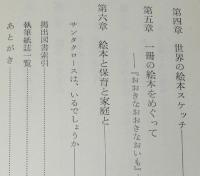 第四章　世界の絵本スケッチ
第五章　一冊の絵本をめぐって
――『おおきなおおきなおいも』
第六章　絵本と保育と家庭と
サンタクロースは、いるでしょうか
掲出図書索引
執筆紙誌一覧
あとがき